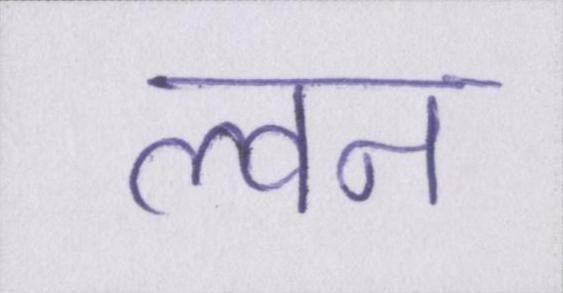 ल्वन